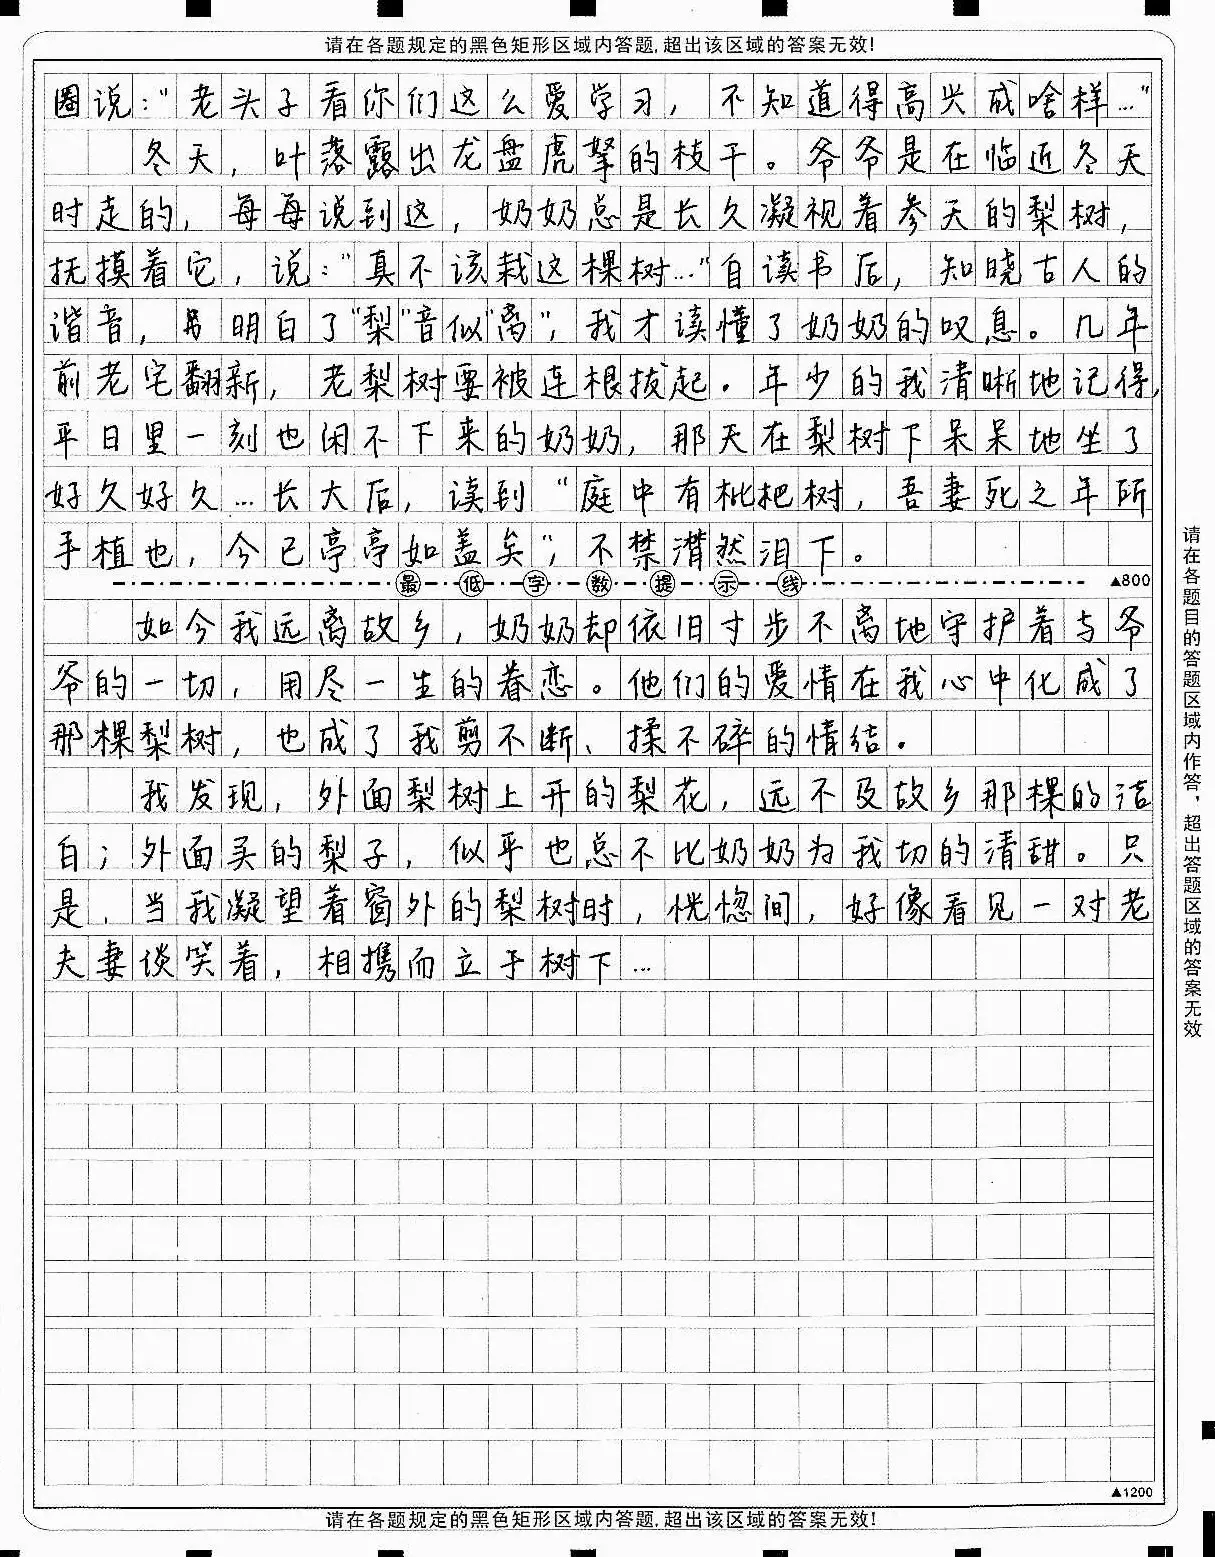 请在各题规定的黑色矩形区域内答题,超出该区域的答案无效!
圈说:"老头子看你们这么爱学习,不知道得高兴成啥样…"
冬天,叶落露出龙盘虎拏的枝干。爷爷是在临近冬天
时走的,每每说到这,奶奶总是长久凝视着参天的梨树,
抚摸着它,说:"真不该栽这棵树…"自读书后,知晓古人的
谐音,明白了"梨"音似"离",我才读懂了奶奶的叹息。几年
前老宅翻新,老梨树要被连根拔起。年少的我清晰地记得,
平日里一刻也闲不下来的奶奶,那天在梨树下呆呆地坐了
好久好久…长大后,读到"庭中有枇杷树,吾妻死之年所
手植也,今已亭亭如盖矣",不禁潸然泪下。
最低字数提示线
▲800
如今我远离故乡,奶奶却依旧寸步不离地守护着与爷
爷的一切,用尽一生的眷恋。他们的爱情在我心中化成了
那棵梨树,也成了我剪不断、揉不碎的情结。
我发现,外面梨树上开的梨花,远不及故乡那棵的洁
白;外面买的梨子,似乎也总不比奶奶为我切的清甜。只
是,当我凝望着窗外的梨树时,恍惚间,好像看见一对老
夫妻谈笑着,相携而立于树下…
▲1200
请在各题规定的黑色矩形区域内答题,超出该区域的答案无效!
请在各题目的答题区域内作答,超出答题区域的答案无效